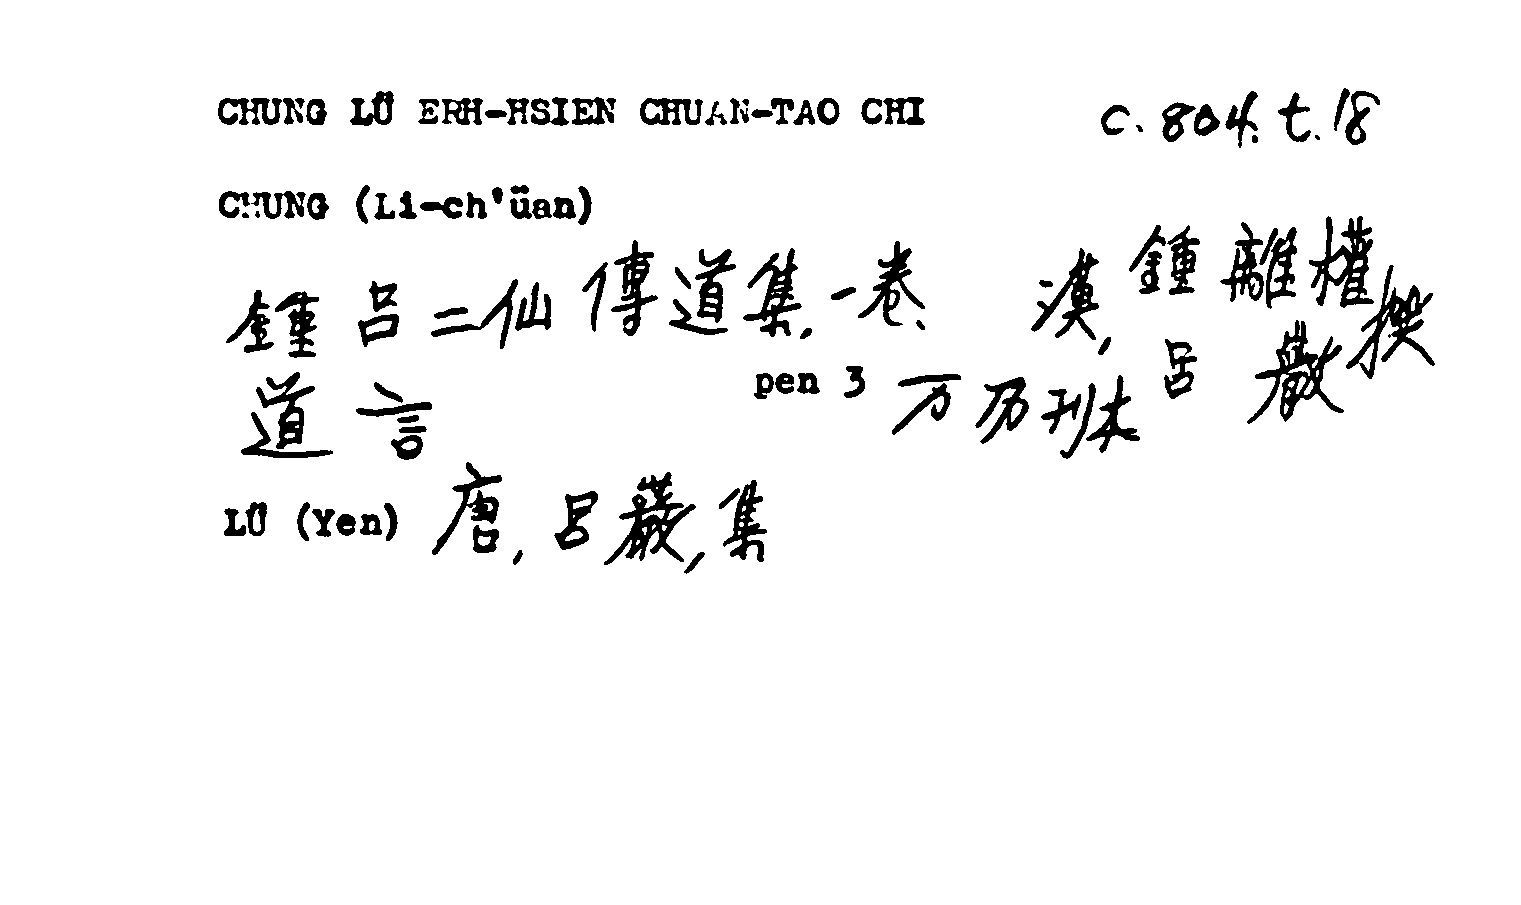 CHUNG LÜ ERH-HSIEN CHUAN-TAO CHI c.804.t.18
CHUNG (Li-ch'üan)
鍾呂二仙傳道集.一卷. 漢,鍾離權撰
道言 pen 3 万历刊本 呂巖
LÜ (Yen) 唐,呂巖,集